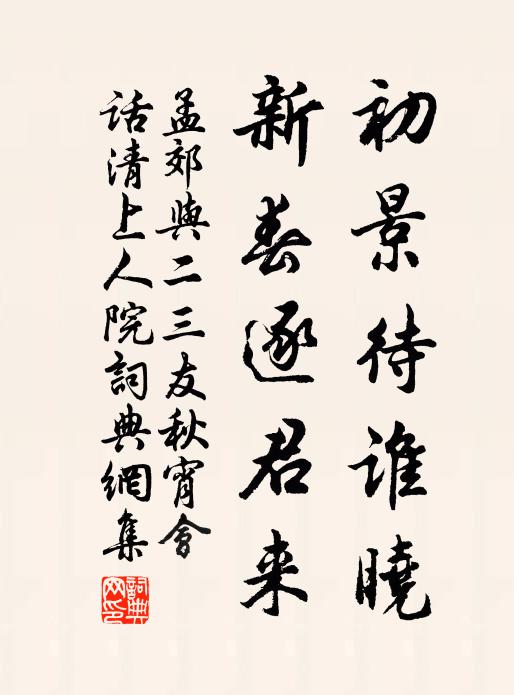 初景待谁曉
新春逐君来
孟郊與二三友秋宵會
话清上人院詞典網集
詞典网印